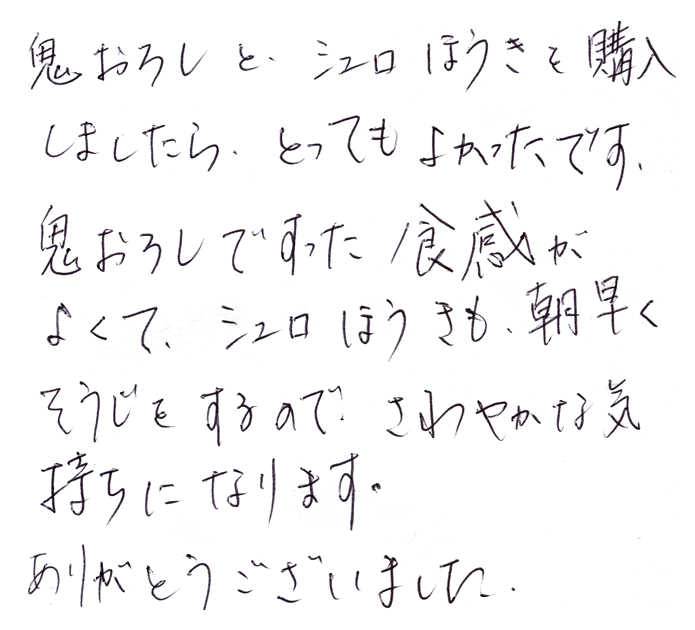 鬼おろしと、シュロほうきを購入
しましたら、とってもよかったです、
鬼おろしですった食感が
よくて、シュロほうきも、朝早く
そうじをするので、さわやかな気
持ちになります。
ありがとうございました、